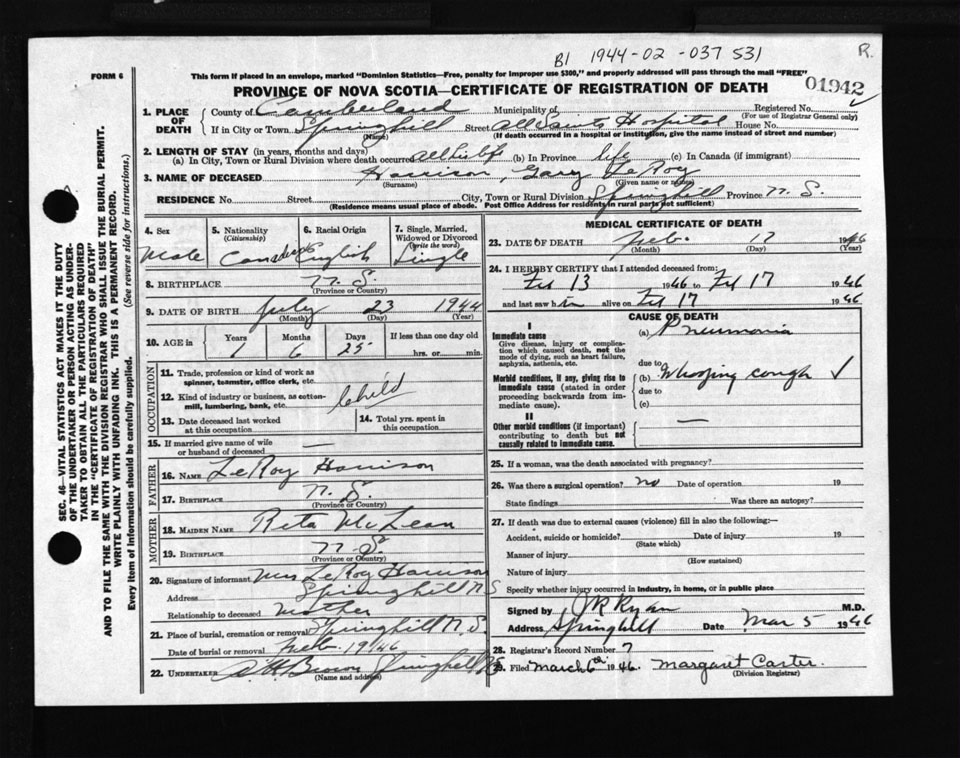 B1 1944-02-037531
R.
FORM 6
This form if placed in an envelope, marked "Dominion Statistics—Free, penalty for improper use $300," and properly addressed will pass through the mail "FREE"
01942
PROVINCE OF NOVA SCOTIA—CERTIFICATE OF REGISTRATION OF DEATH
1. PLACE OF DEATH
County of Cumberland Municipality of Registered No.
(For use of Registrar General only)
If in City or Town Springhill Street All Saints Hospital House No.
(Name) (If death occurred in a hospital or institution, give the name instead of street and number)
2. LENGTH OF STAY (in years, months and days)
(a) In City, Town or Rural Division where death occurred All his life (b) In Province life (c) In Canada (if immigrant)
3. NAME OF DECEASED Harrison, Gary LeRoy
(Surname) (Given name or names)
RESIDENCE No. Street City, Town or Rural Division Springhill Province N.S.
(Residence means usual place of abode. Post Office Address for residents in rural parts not sufficient)
4. Sex
Male
5. Nationality
(Citizenship)
Canadian
6. Racial Origin
English
7. Single, Married, Widowed or Divorced
(Write the word)
Single
8. BIRTHPLACE N.S.
(Province or Country)
9. DATE OF BIRTH July 23 1944
(Month) (Day) (Year)
10. AGE in Years Months Days If less than one day old
1 6 25 hrs. or min.
OCCUPATION
11. Trade, profession or kind of work as spinner, teamster, office clerk, etc.
12. Kind of industry or business, as cotton-mill, lumbering, bank, etc.
Child
13. Date deceased last worked at this occupation
14. Total yrs. spent in this occupation
15. If married give name of wife or husband of deceased —
FATHER
16. NAME LeRoy Harrison
17. BIRTHPLACE N.S.
(Province or Country)
MOTHER
18. MAIDEN NAME Reta McLean
19. BIRTHPLACE N.S.
(Province or Country)
20. Signature of informant Mrs LeRoy Harrison
Address Springhill N S
Relationship to deceased Mother
21. Place of burial, cremation or removal Springhill N.S.
Date of burial or removal Feb. 19/46
22. UNDERTAKER Brown Springhill N.S.
(Name and address)
MEDICAL CERTIFICATE OF DEATH
23. DATE OF DEATH Feb. 17 1946
(Month) (Day) (Year)
24. I HEREBY CERTIFY that I attended deceased from:
Feb 13 1946 to Feb 17 1946
and last saw him alive on Feb 17 1946
CAUSE OF DEATH
I
Immediate cause
Give disease, injury or complication which caused death, not the mode of dying, such as heart failure, asphyxia, asthenia, etc.
(a) Pneumonia
due to
Morbid conditions, if any, giving rise to immediate cause (stated in order proceeding backwards from immediate cause).
(b) Whooping cough ✓
due to
(c)
II
Other morbid conditions (if important) contributing to death but not causally related to immediate cause.
—
25. If a woman, was the death associated with pregnancy?
26. Was there a surgical operation? no Date of operation 19
State findings Was there an autopsy?
27. If death was due to external causes (violence) fill in also the following:—
Accident, suicide or homicide? Date of injury 19
(State which)
Manner of injury
(How sustained)
Nature of injury
Specify whether injury occurred in industry, in home, or in public place
Signed by J R Ryan M.D.
Address Springhill Date Mar 5 1946
28. Registrar's Record Number 7
29. Filed March 6th 1946. Margaret Carter.
(Division Registrar)
SEC. 46—VITAL STATISTICS ACT MAKES IT THE DUTY
OF THE UNDERTAKER OR PERSON ACTING AS UNDER-
TAKER TO OBTAIN ALL THE PARTICULARS REQUIRED
IN THE "CERTIFICATE OF REGISTRATION OF DEATH"
AND TO FILE THE SAME WITH THE DIVISION REGISTRAR WHO SHALL ISSUE THE BURIAL PERMIT.
WRITE PLAINLY WITH UNFADING INK. THIS IS A PERMANENT RECORD.
Every item of information should be carefully supplied. (See reverse side for instructions.)